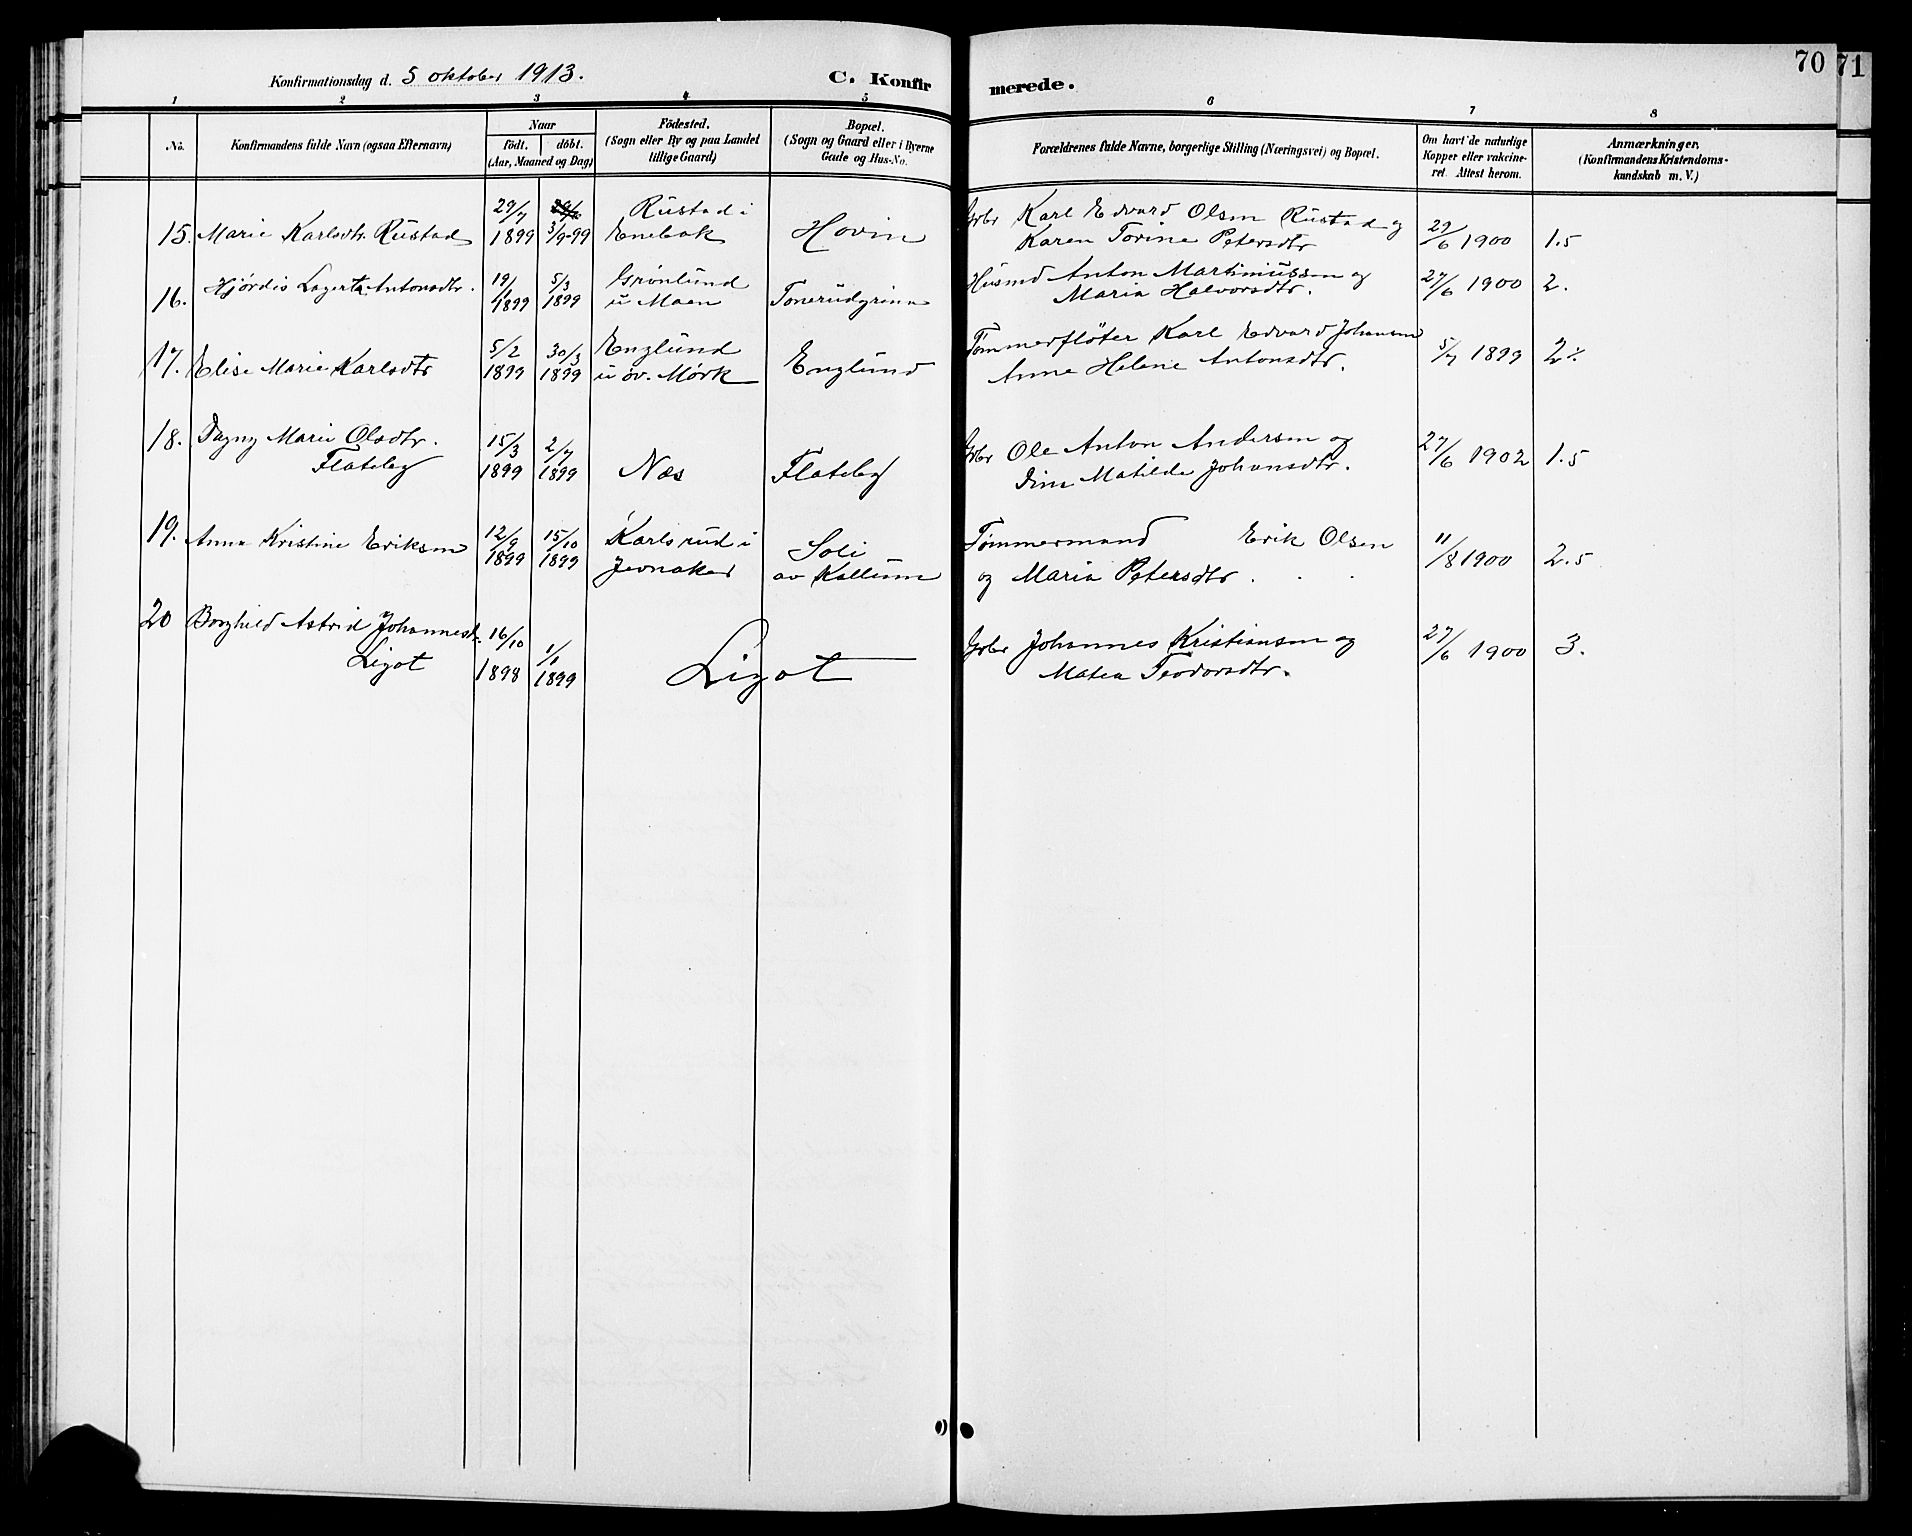 70
71
Konfirmationsdag d. 5 oktober 1913.
C. Konfir
merede.
1 2 3 4 5 6 7 8
No.
Konfirmandens fulde Navn (ogsaa Efternavn)
Naar
födt. döbt.
(Aar, Maaned og Dag)
Födested.
(Sogn eller By og paa Landet
tillige Gaard)
Bopæl.
(Sogn og Gaard eller i Byerne
Gade og Hus-No.
Forældrenes fulde Navne, borgerlige Stilling (Næringsvei) og Bopæl.
Om havt de naturlige
Kopper eller vakcine-
ret. Attest herom.
Anmærkninger,
(Konfirmandens Kristendoms-
kundskab m. V.)
15. Marie Karlsdtr. Rustad
29/7 1899
3/9-99
Rustad i
Enebak
Hovin
Gbr Karl Edvard Olsen Rustad og
Karen Torine Petersdtr
29/6 1900
1.5
16. Hjørdis Lagerta Antonsdtr.
19/1 1899
5/3 1899
Grönlund
u Moen
Tonerudgrinn
Husmd Anton Martinussen og
Maria Halvorsdtr.
27/6 1900
2.
17. Elise Marie Karlsdtr
5/2 1899
30/3 1899
Englund
u öv. Mörk
Englund
Tømmerflöter Karl Edvard Johansen
Anne Helene Antonsdtr.
5/7 1899
18. Dagny Marie Olsdtr.
Flateby
15/3 1899
2/7 1899
Næs
Flateby
Gbr Ole Anton Andersen og
Dina Matilde Johansdtr.
27/6 1902
1.5
19. Anna Kristine Eriksen
12/9 1899
15/10 1899
Karlsrud i
Jevnaker
Soli
av Kallum
Tømmermand Erik Olsen
og Maria Petersdtr.
11/8 1900
2.5
20 Borghild Astrid Johannesdt.
Ligot
16/10 1898
1/1 1899
Ligot
Gbr Johannes Kristiansen og
Matea Teodorsdtr.
27/6 1900
3.